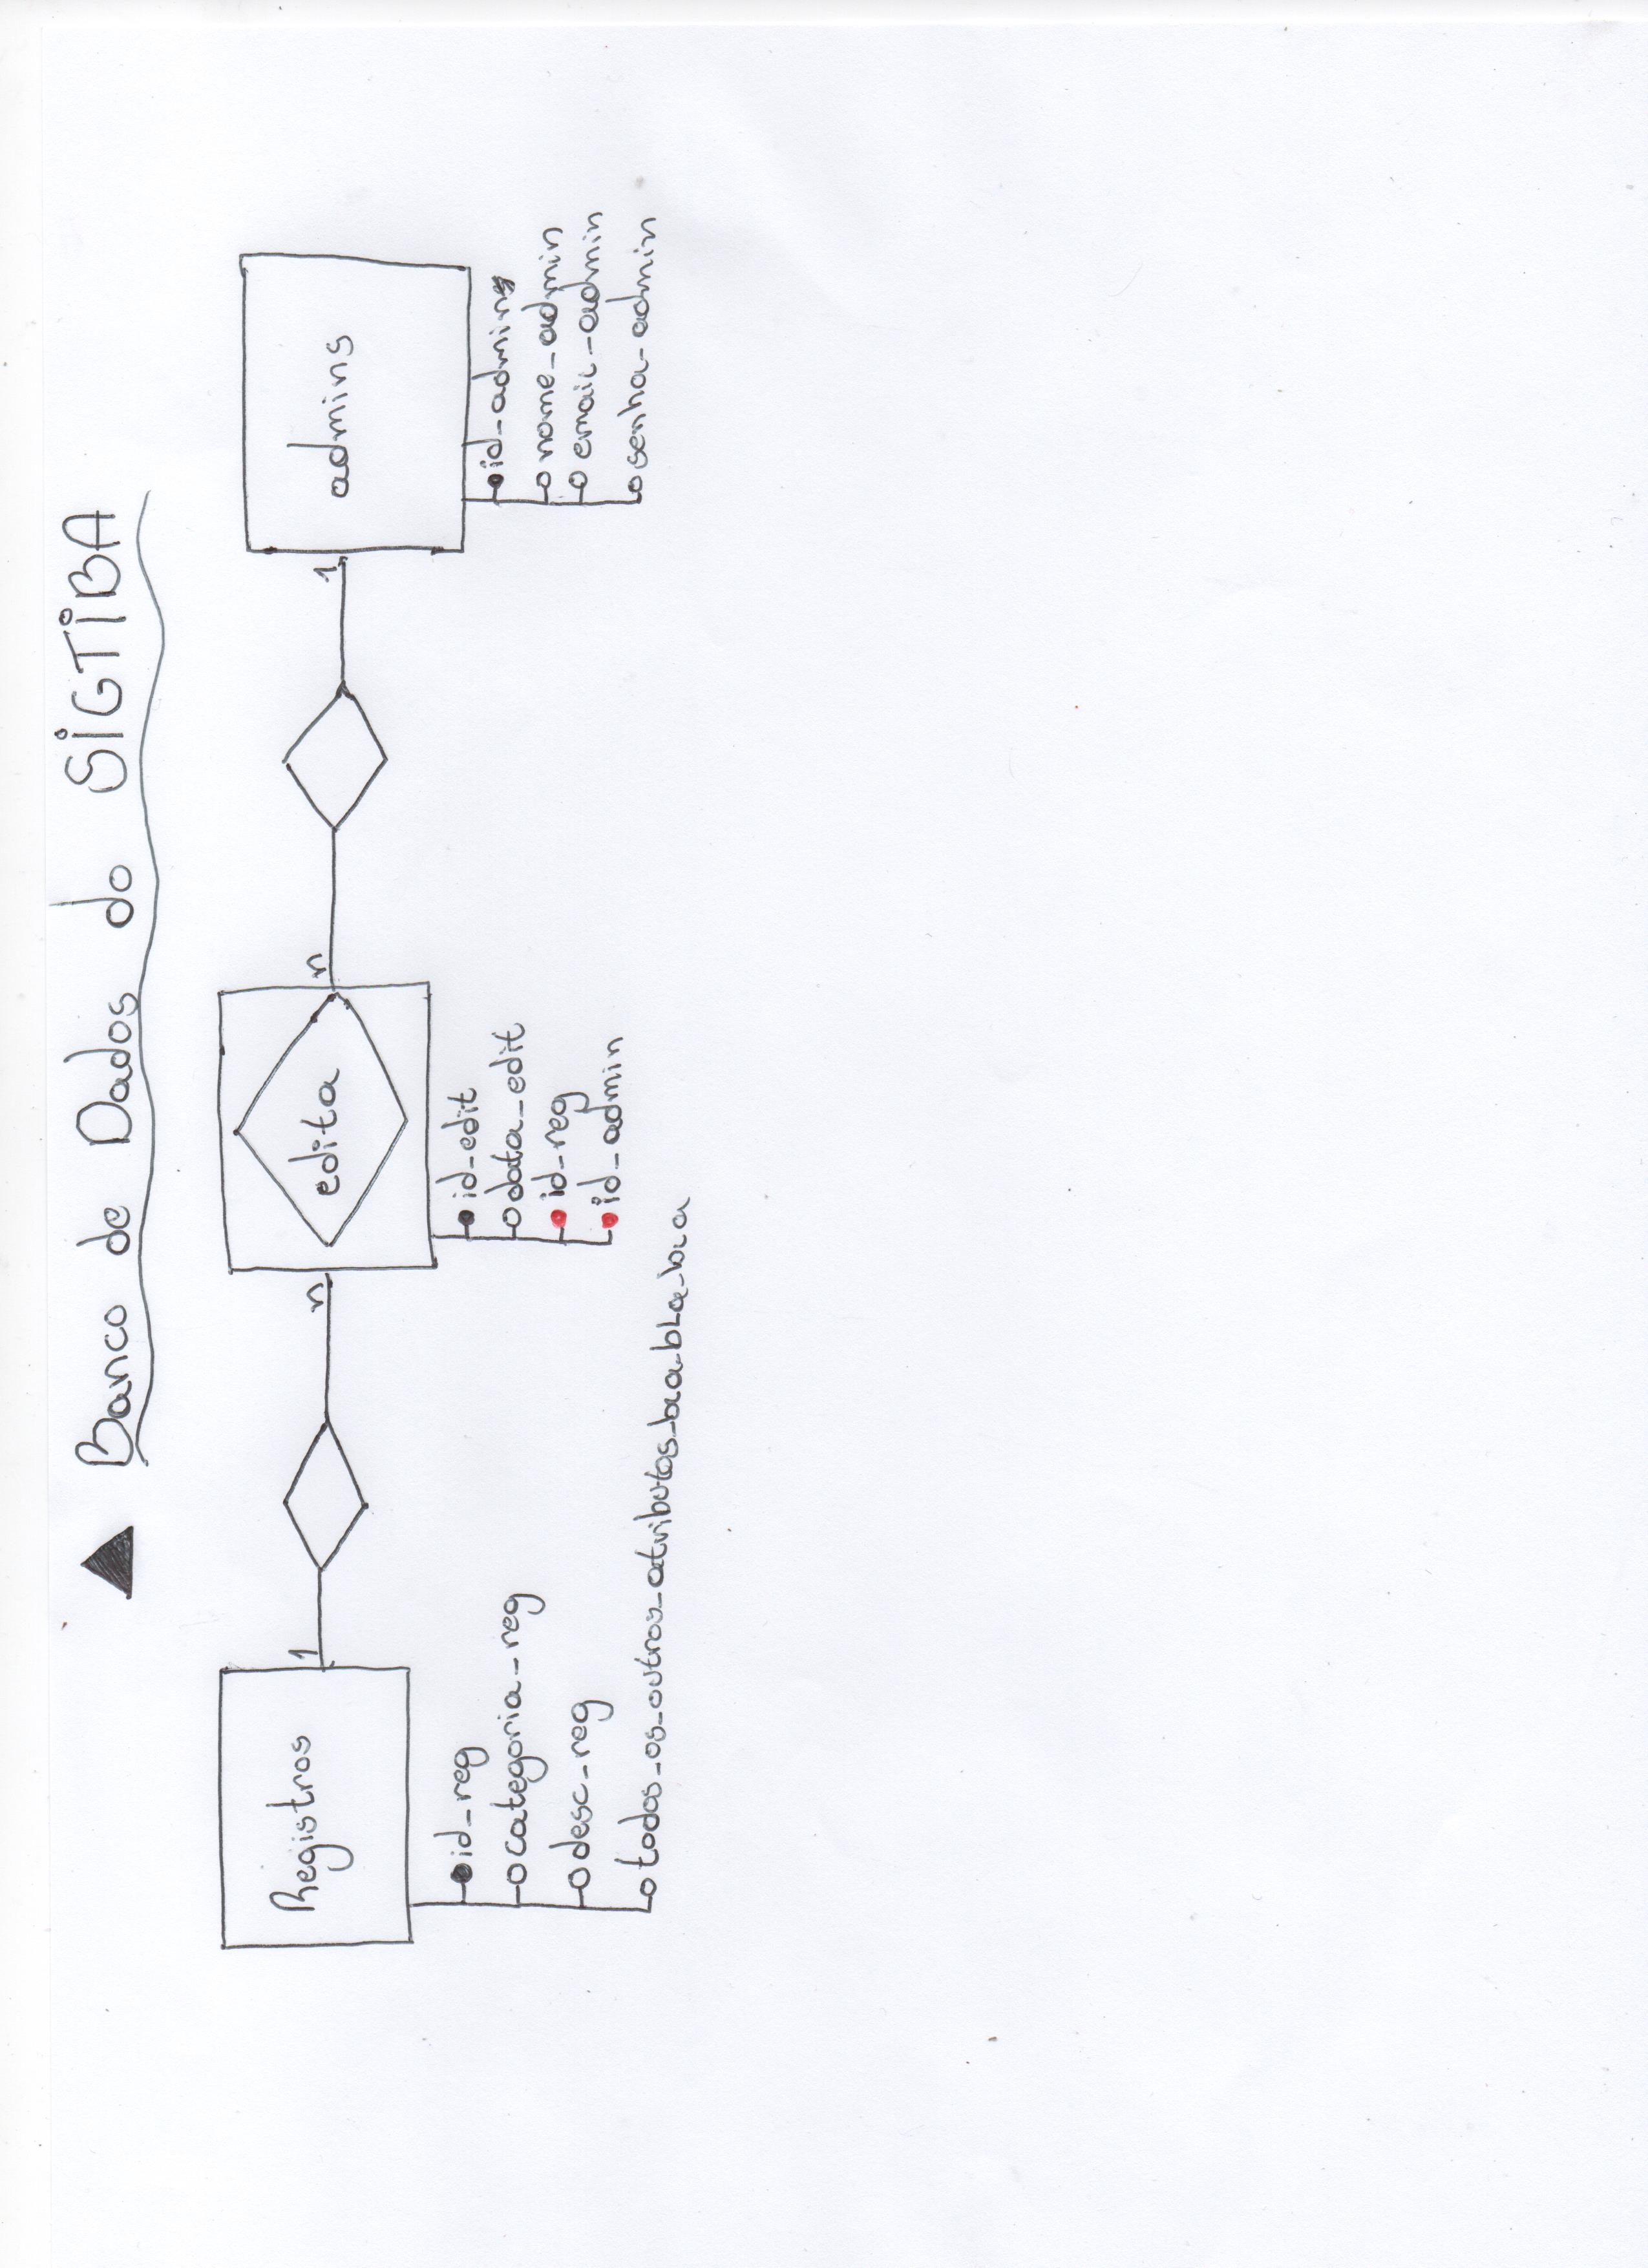 Banco de Dados do SIGTIBA
Registros
1
n
edita
n
1
admins
id_reg
categoria_reg
desc_reg
todos_os_outros_atributos_bla_bla_bla
id_edit
data_edit
id_reg
id_admin
id_admin
nome_admin
email_admin
senha_admin